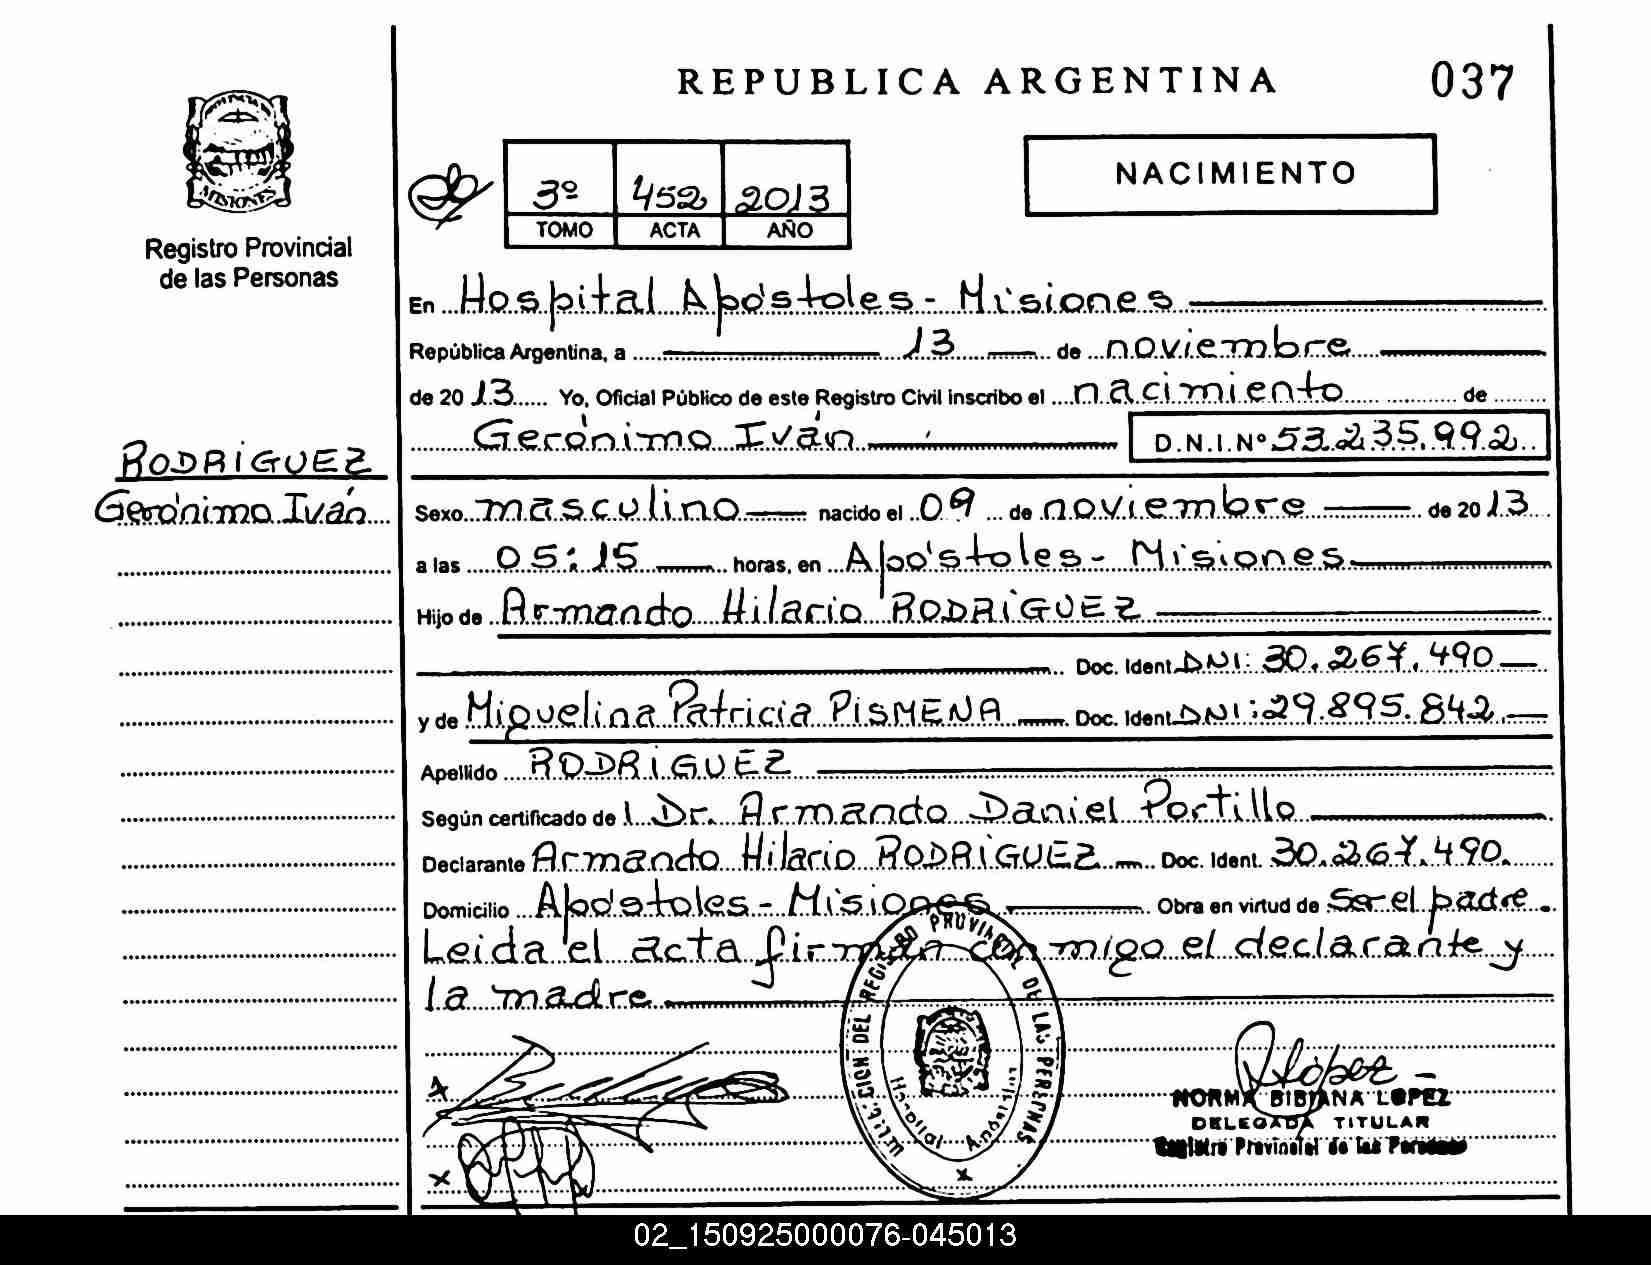 REPUBLICA ARGENTINA
037
MISIONES
Registro Provincial
de las Personas
3º 452 2013
TOMO ACTA AÑO
NACIMIENTO
En Hospital Apóstoles - Misiones
República Argentina, a 13 de noviembre
de 2013 Yo, Oficial Público de este Registro Civil inscribo el nacimiento de
Gerónimo Iván D.N.I.Nº 53.235.992
RODRiGUEZ
Gerónimo Iván
Sexo masculino nacido el 09 de noviembre de 2013
a las 05:15 horas, en Apóstoles - Misiones
Hijo de Armando Hilario RODRiGUEZ
Doc. Ident. DNI: 30.267.490
y de Miguelina Patricia PisMENA Doc. Ident. DNI: 29.895.842
Apellido RODRiGUEZ
Según certificado de l Dr. Armando Daniel Portillo
Declarante Armando Hilario RODRiGUEZ Doc. Ident. 30.267.490.
Domicilio Apóstoles - Misiones Obra en virtud de Ser el padre.
Leida el acta firman conmigo el declarante y
la madre
DEL REGISTRO PROVINCIAL DE LAS PERSONAS
Hospital Apóstoles
López
NORMA BIBIANA LOPEZ
DELEGADA TITULAR
Registro Provincial de las Personas
02_150925000076-045013